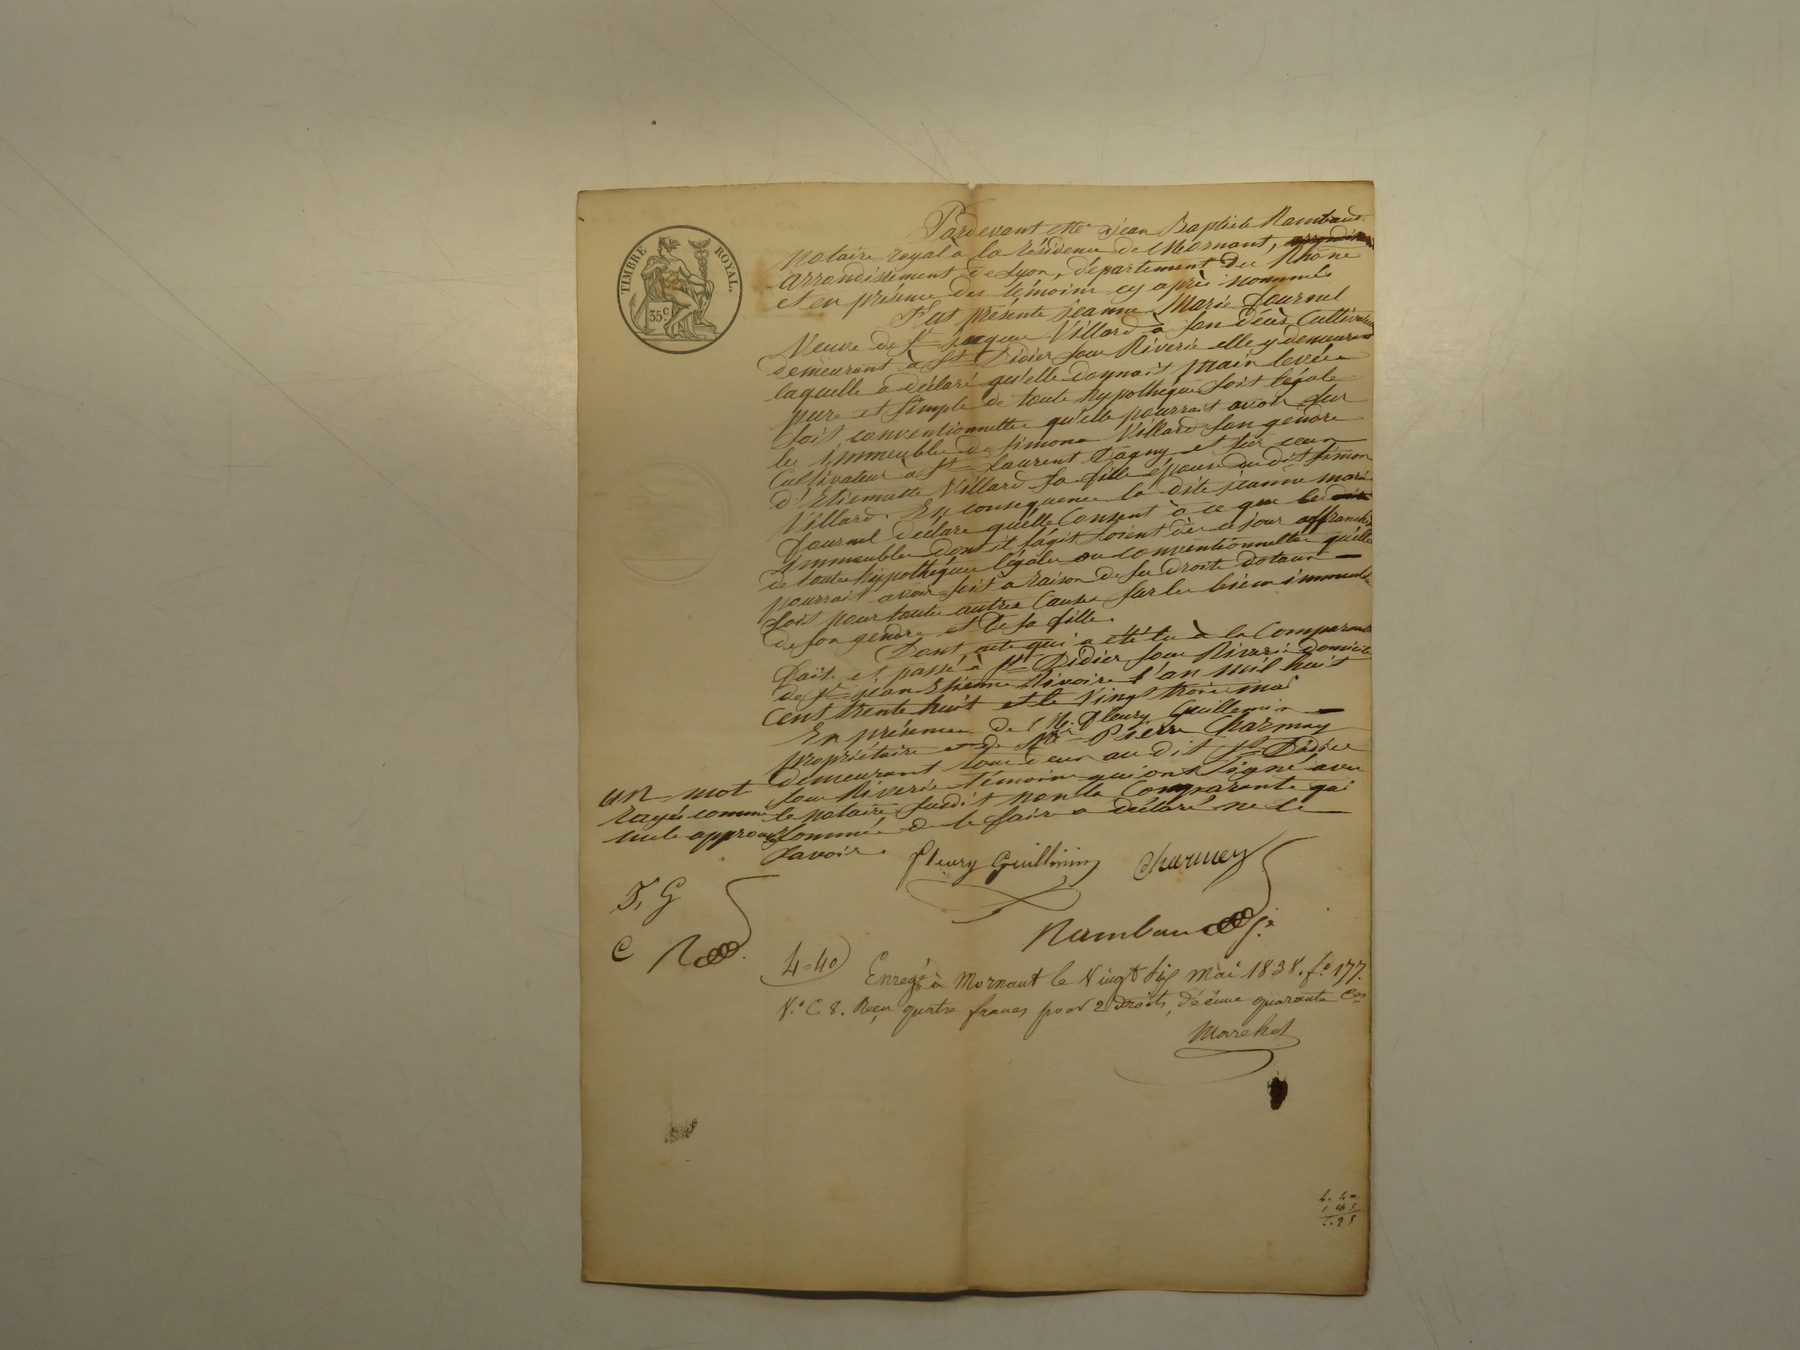 TIMBRE ROYAL.
35c
Pardevant Me Jean Baptiste Rambaud
notaire royal à la résidence de Mornant,
arrondissement de Lyon, département du Rhône
et en présence des témoins cy après nommés
Fut présente Jeanne Marie Journel
Veuve de Sr Jacques Villard à son décès Cultivateur
demeurant à St Didier sous Riverie elle y demeurant
laquelle a déclaré qu'elle donnait main levée
pure et simple de toute hypothèque soit légale
soit conventionnelle qu'elle pourrait avoir sur
les immeubles de Simon Villard son gendre
Cultivateur à St Laurent Dagny et sur ceux
d'Etiennette Villard sa fille épouse du dit Simon
Villard. En conséquence la dite jeanne marie
Journel déclare qu'elle Consent à ce que les
immeubles dont il s'agit soient dès ce jour affranchis
de toutes hypothèques légales ou conventionnelles qu'elle
pourrait avoir soit a raison de ses droits dotaux
soit pour toute autres Causes sur les biens immeubles
de son gendre et de sa fille.
Dont acte qui a été lu à la Comparante
fait et passé à St Didier sous Riverie domicile
de Sr jean Etienne Rivoire l'an mil huit
Cent trente huit et le Vingt trois mai
En présence de M. Fleury Guillemin
propriétaire et de Pierre Charmey
demeurant tous deux au dit St Didier
sous Riverie témoins qui ont signé avec
le notaire susdit non la Comparante qui
sommée de le faire a déclaré ne le
savoir.
un mot
rayé comme
nul approuvé
Fleury Guillimin Charmey
F, G
C R
Rambaud
4=40
Enregé à Mornant le Vingt six mai 1838. fo 177.
Vo C. 8. Reçu quatre francs pour 2 droits, décime quarante Ces
Marehal